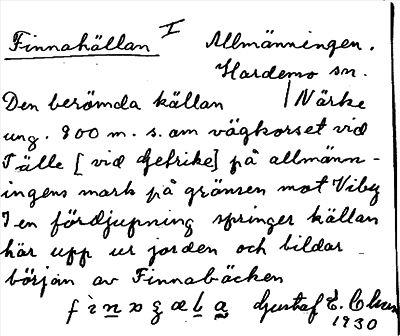 Finnakällan I Allmänningen.
Hardemo sn.
Den berömda källan / Närke
ung. 800 m. s. om vägkorset vid
Tälle [vid Getrike] på allmänn-
ingens mark på gränsen mot Viby
I en fördjupning springer källan
här upp ur jorden och bildar
början av Finnabäcken
Gustaf E.
1930